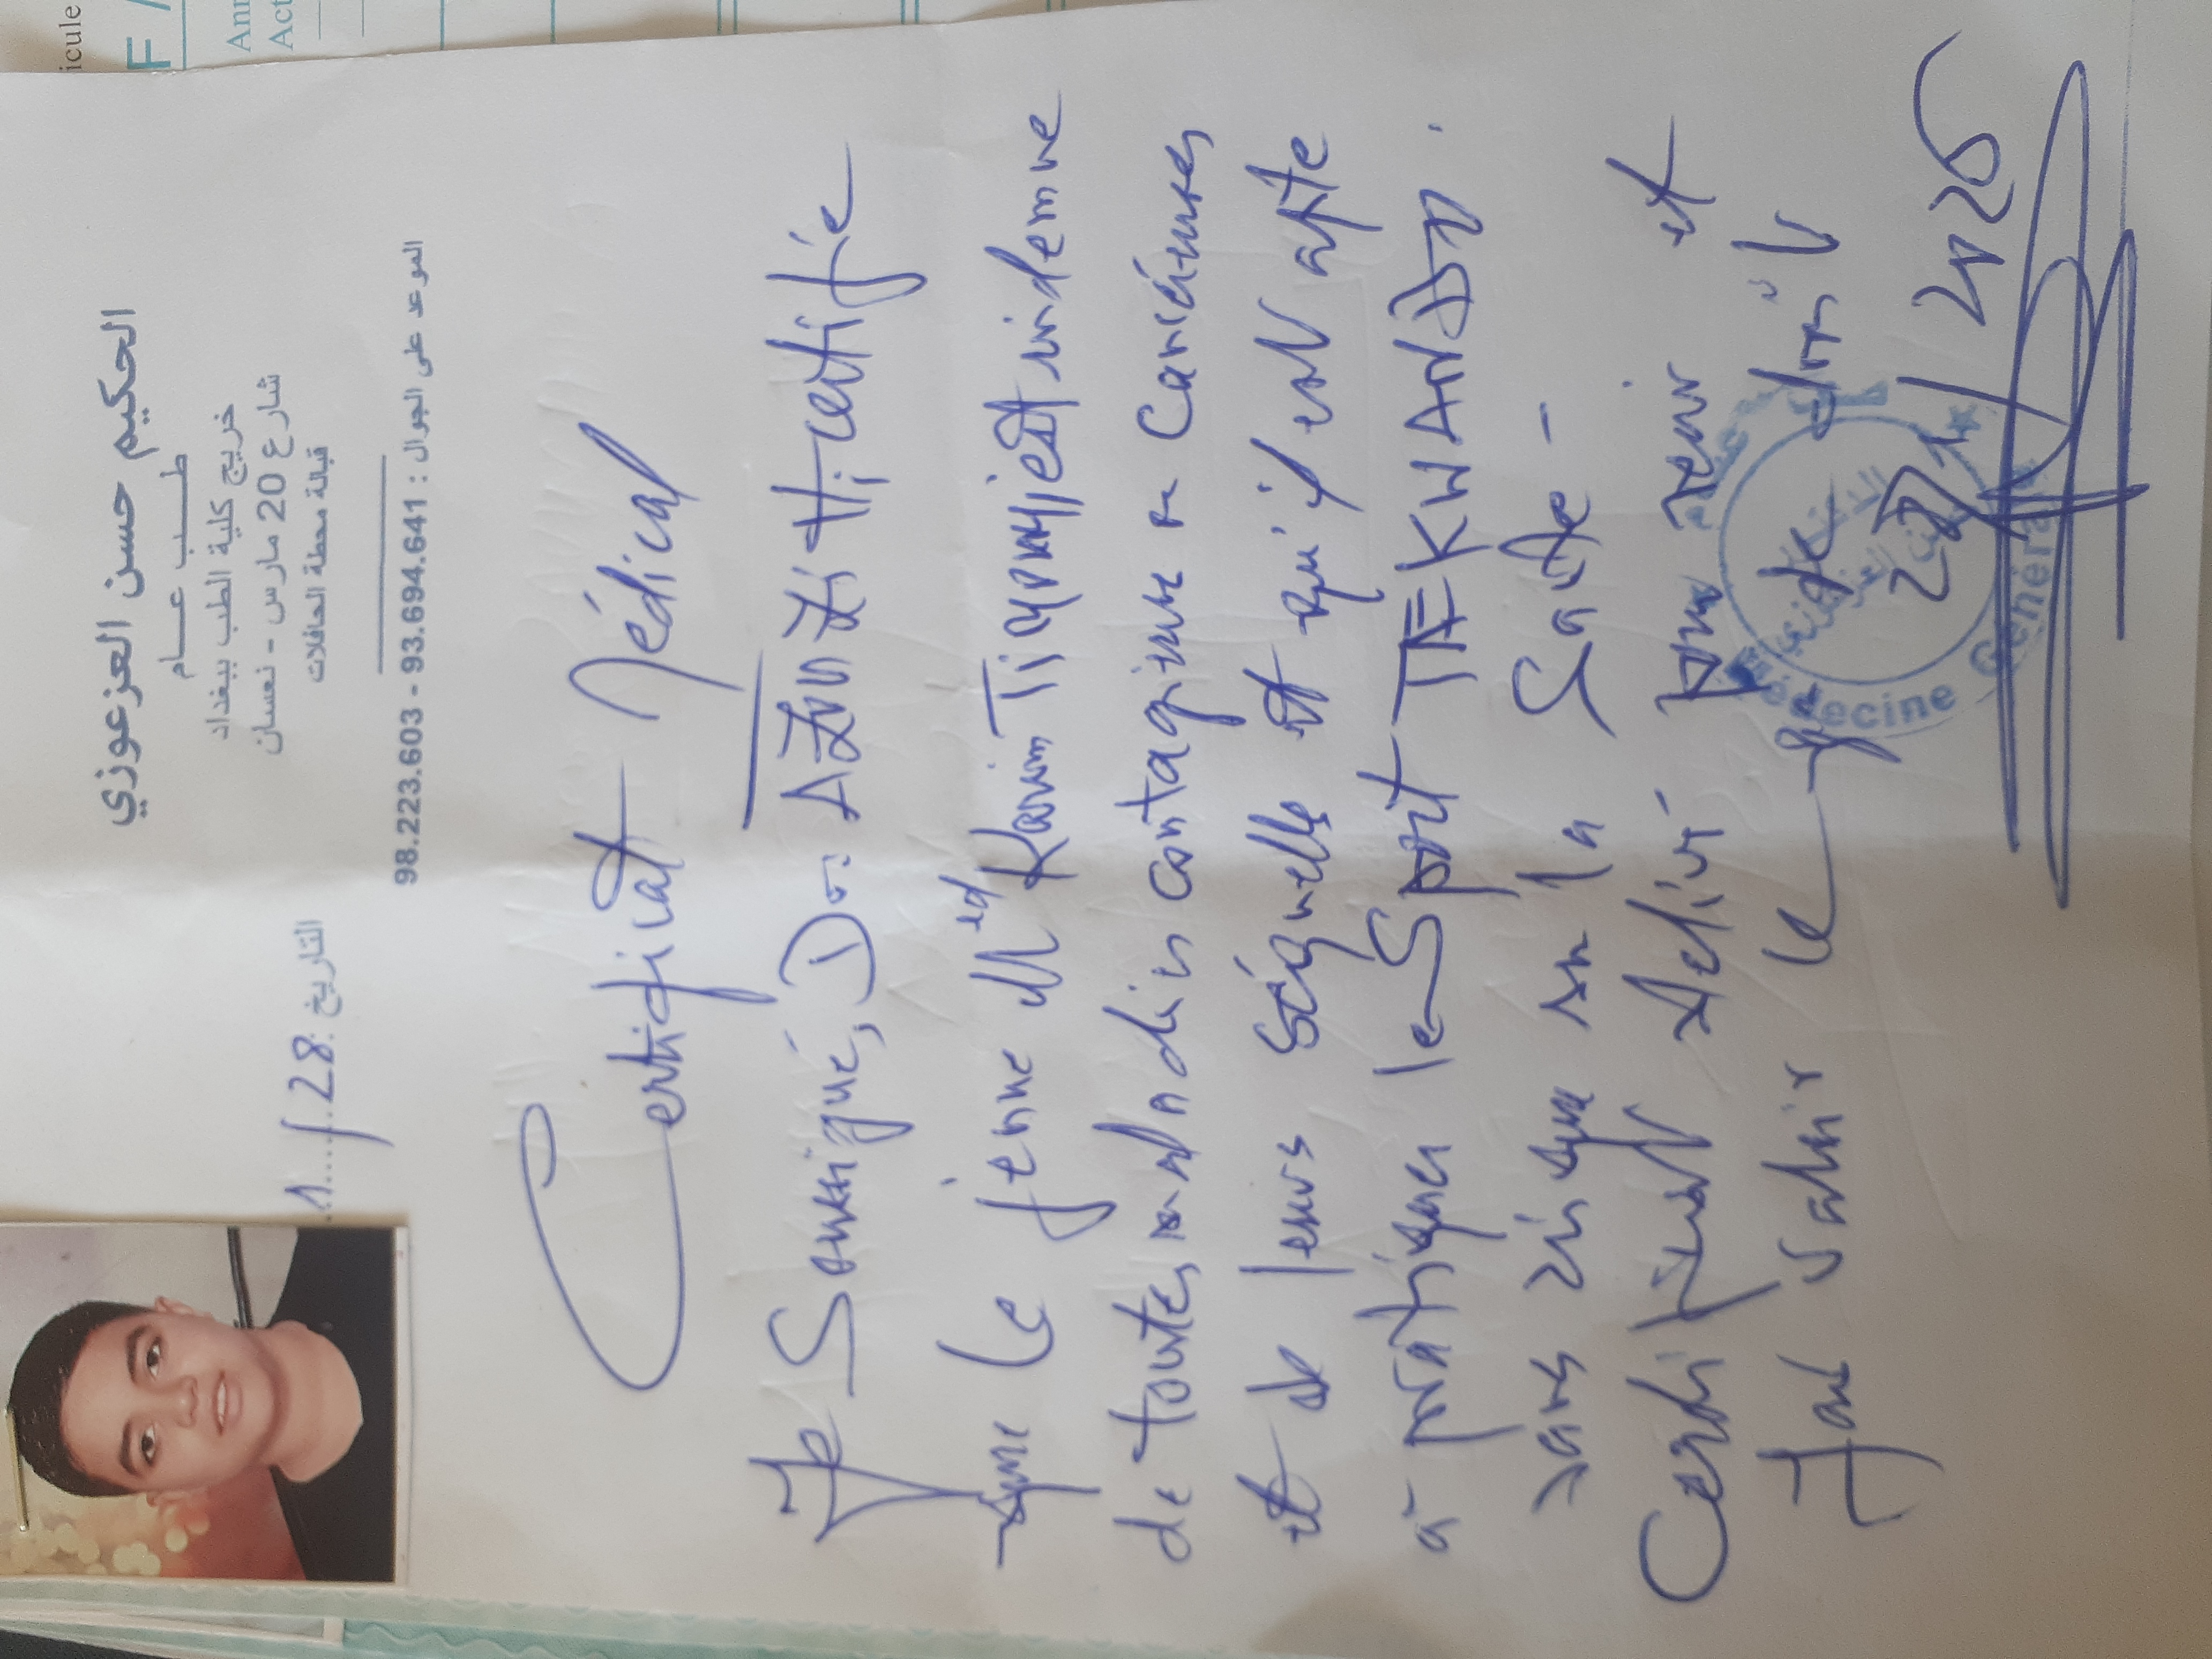 الحكيم حسن العزعوزي
طـــب عـــام
خريج كلية الطب ببغداد
شارع 20 مارس - نعسان
قبالة محطة الحافلات
الموعد على الجوال : 93.694.641 - 98.223.603
التاريخ :
Certificat Médical
Je Soussigné, Dr: certifie
que le jeune Med Karim indemne
de toutes maladies contagieuses ou Cancéreuses
et de leurs séquelles et qu'il est apte
à pratiquer le Sport TAEKWANDO.
sans risque sur la Santé -
Certificat délivré pour servir et
faire valoir ce que de droit
Médecine Générale
icule
F
Ann
Act